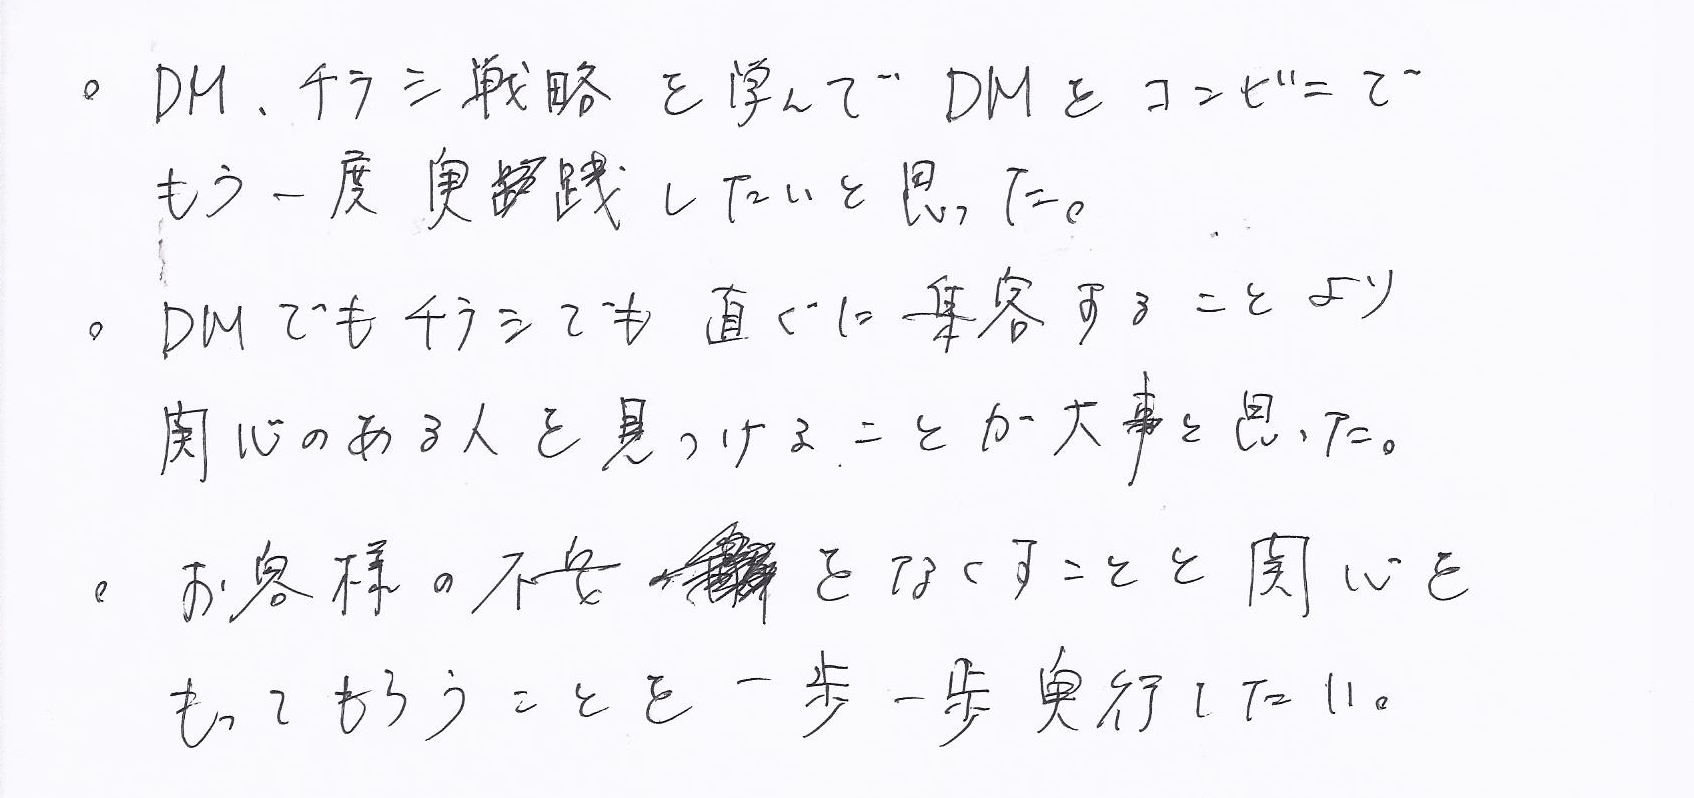 。DM、チラシ戦略を学んでDMをコンビニで
もう一度実践したいと思った。
。DMでもチラシでも直ぐに集客することより
関心のある人を見つけることが大事と思った。
。お客様の不安をなくすことと関心を
もってもらうことを一歩一歩実行したい。